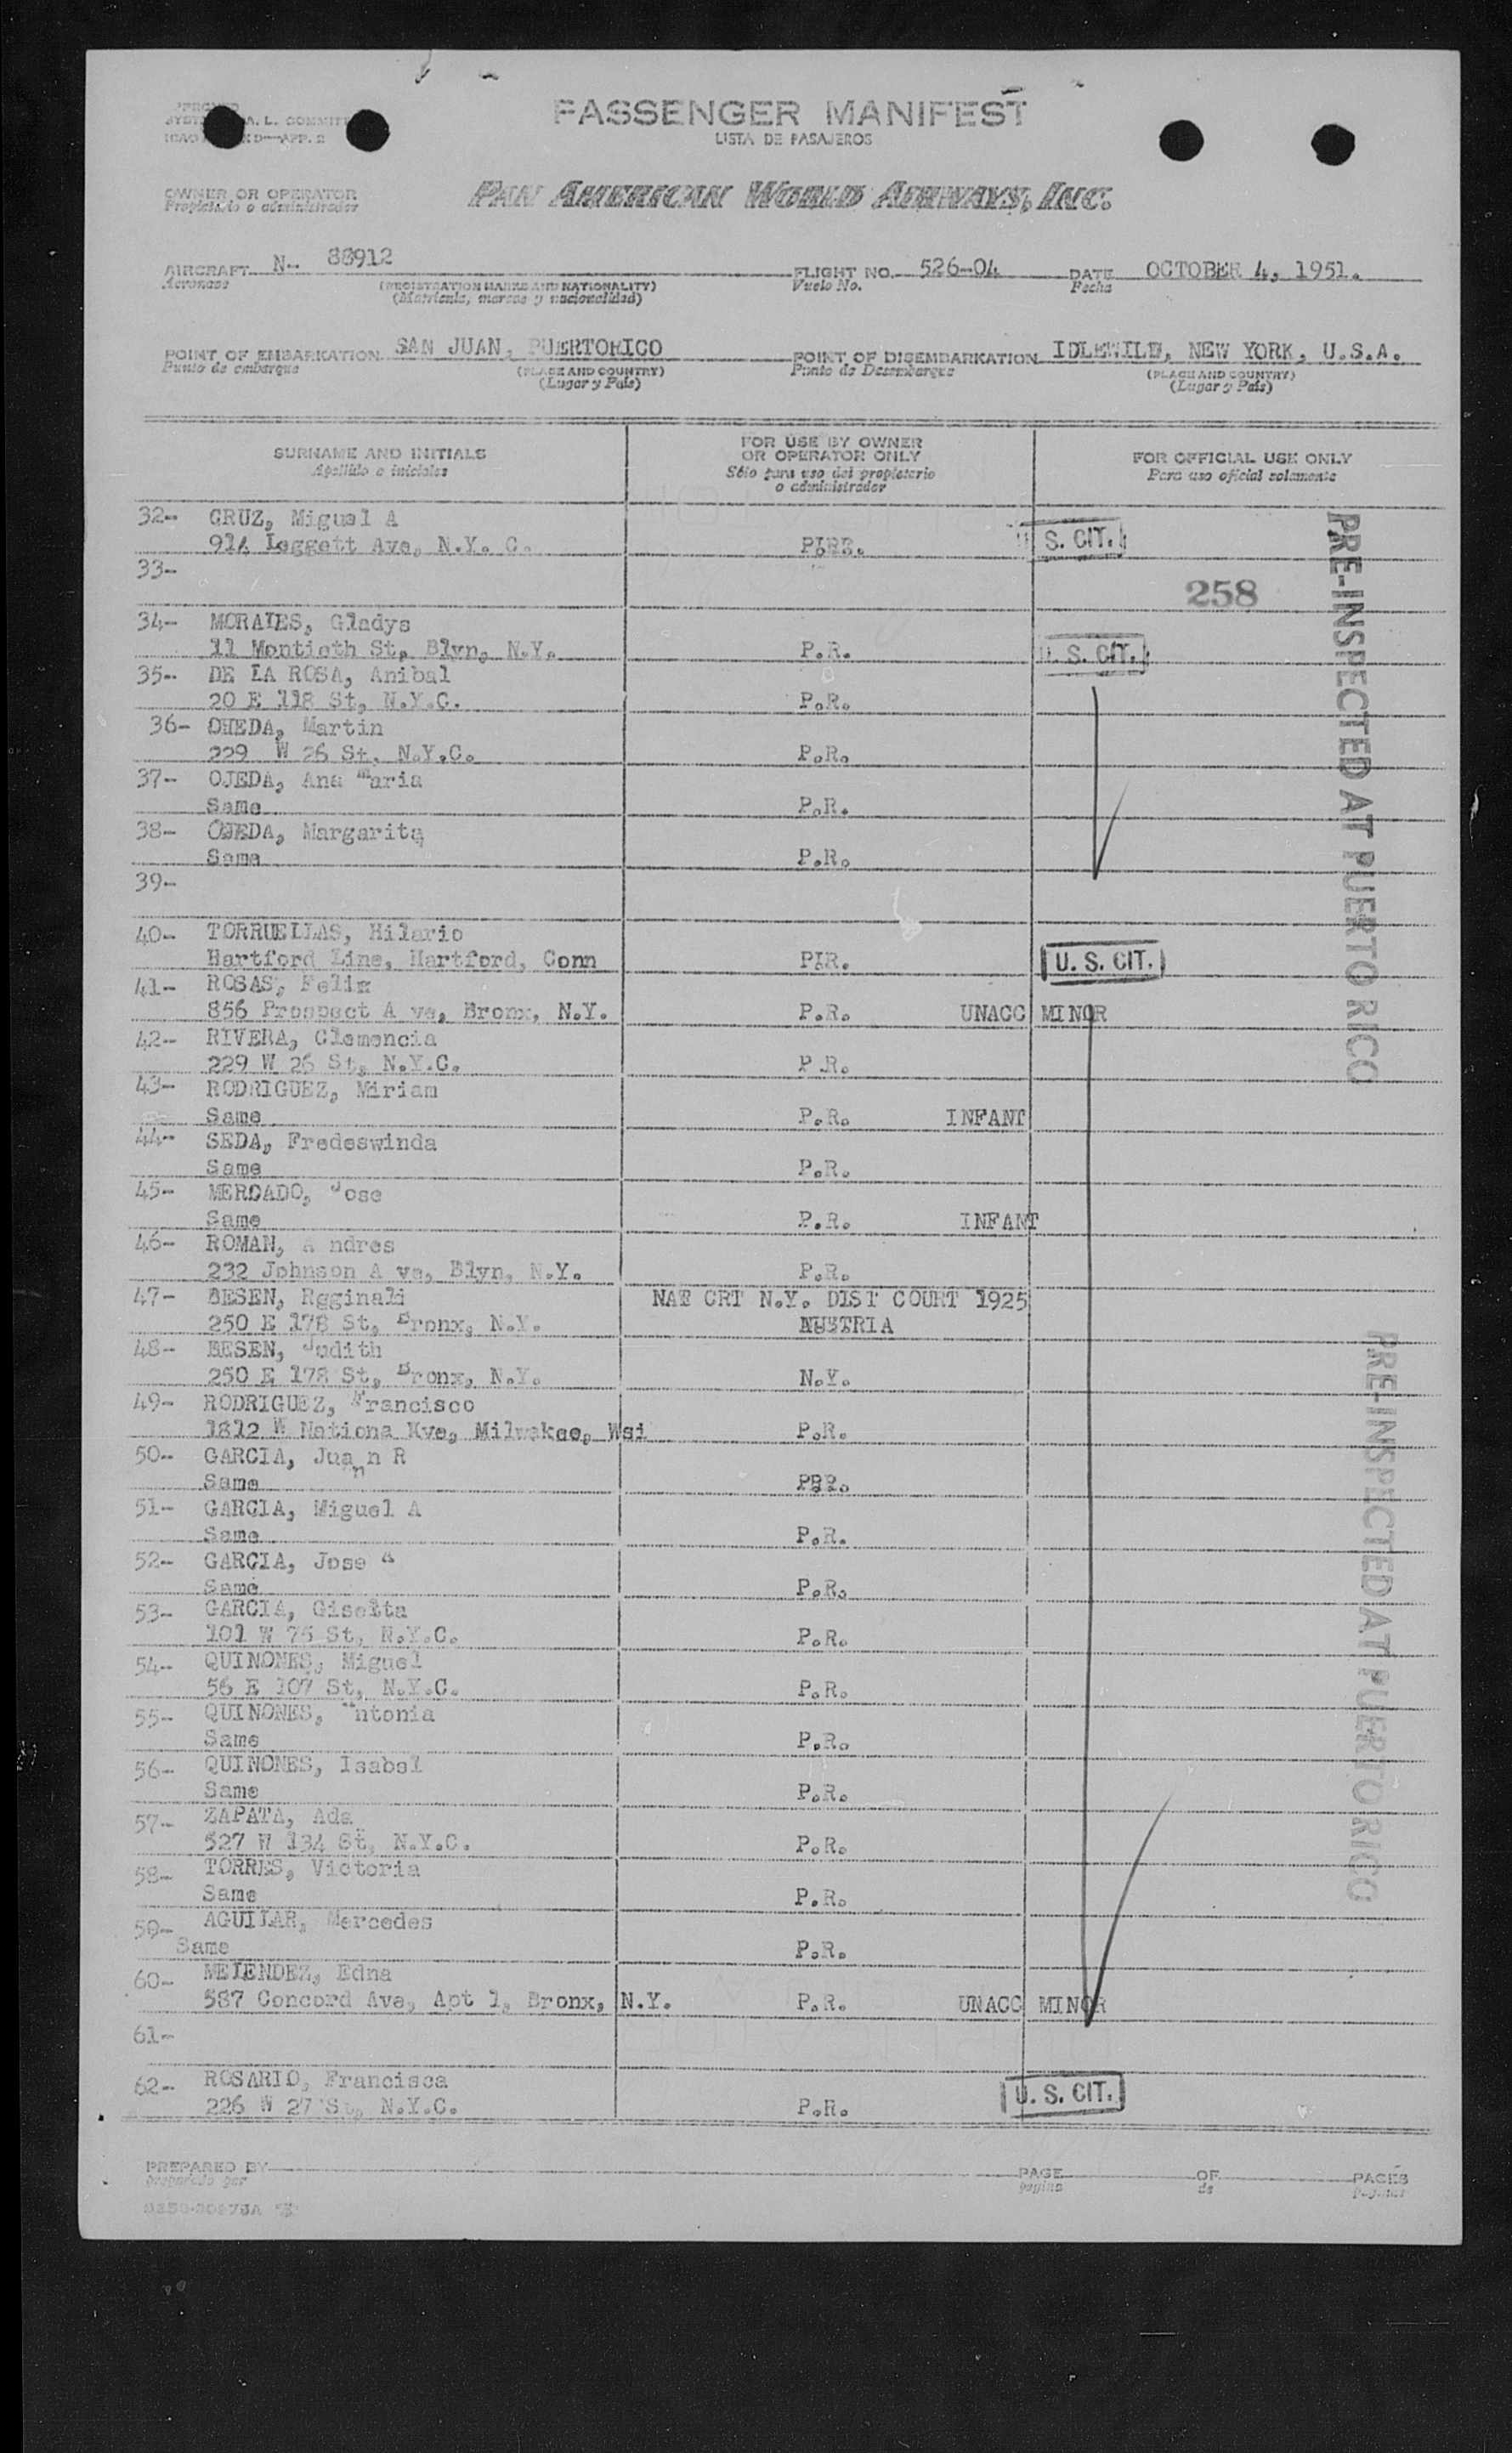 PASSENGER MANIFEST
LISTA DE PASAJEROS
A. L. COMMITT
ICAO APP. 2
OWNER OR OPERATOR
Propietario o administrador
PAN AMERICAN WORLD AIRWAYS, INC.
AIRCRAFT N- 88912 FLIGHT NO. 526-04 DATE OCTOBER 4, 1951.
Aeronave (REGISTRATION MARKS AND NATIONALITY) Vuelo No. Fecha
(Matricula, marcas y nacionalidad)
POINT OF EMBARKATION SAN JUAN, PUERTORICO POINT OF DISEMBARKATION IDLEWILD, NEW YORK, U.S.A.
Punto de embarque (PLACE AND COUNTRY) Punto de Desembarque (PLACE AND COUNTRY)
(Lugar y País) (Lugar y País)
SURNAME AND INITIALS FOR USE BY OWNER OR OPERATOR ONLY FOR OFFICIAL USE ONLY
Apellido e iniciales Sólo para uso del propietario o administrador Para uso oficial solamente
32- CRUZ, Miguel A
914 Leggett Ave, N.Y. C. U. S. CIT.
33-
258
34- MORALES, Gladys
11 Montieth St, Blyn, N.Y. P.R. U. S. CIT.
35- DE LA ROSA, Anibal
20 E 118 St, N.Y.C. P.R.
36- OHEDA, Martin
229 W 26 St, N.Y.C. P.R.
37- OJEDA, Ana Maria
Same P.R.
38- OJEDA, Margarita
Same P.R.
39-
40- TORRUELLAS, Hilario
Hartford Line, Hartford, Conn U. S. CIT.
41- ROSAS, Felix
856 Prospect A ve, Bronx, N.Y. P.R. UNACC MINOR
42- RIVERA, Clemencia
229 W 26 St, N.Y.C. P.R.
43- RODRIGUEZ, Miriam
Same P.R. INFANT
44- SEDA, Fredeswinda
Same P.R.
45- MERCADO, Jose
Same P.R. INFANT
46- ROMAN, A ndres
232 Johnson A ve, Blyn, N.Y. P.R.
47- BESEN, Rgginald NAT CRT N.Y. DIST COURT 1925
250 E 178 St, Bronx, N.Y. AUSTRIA
48- BESEN, Judith
250 E 178 St, Bronx, N.Y. N.Y.
49- RODRIGUEZ, Francisco
1812 W Nationa Ave, Milwakee, Wsi P.R.
50- GARCIA, Juan n R
Same
51- GARCIA, Miguel A
Same P.R.
52- GARCIA, Jose A
Same P.R.
53- GARCIA, Giselta
101 W 75 St, N.Y.C. P.R.
54- QUINONES, Miguel
56 E 107 St, N.Y.C. P.R.
55- QUINONES, Antonia
Same P.R.
56- QUINONES, Isabel
Same P.R.
57- ZAPATA, Ada
527 W 134 St, N.Y.C. P.R.
58- TORRES, Victoria
Same P.R.
59- AGUILAR, Mercedes
Same P.R.
60- MELENDEZ, Edna
587 Concord Ave, Apt 1, Bronx, N.Y. P.R. UNACC MINOR
61-
62- ROSARIO, Francisca
226 W 27 St, N.Y.C. P.R. U. S. CIT.
PRE-INSPECTED AT PUERTO RICO
PRE-INSPECTED AT PUERTO RICO
PREPARED BY PAGE OF PAGES
preparado por pagina de Paginas